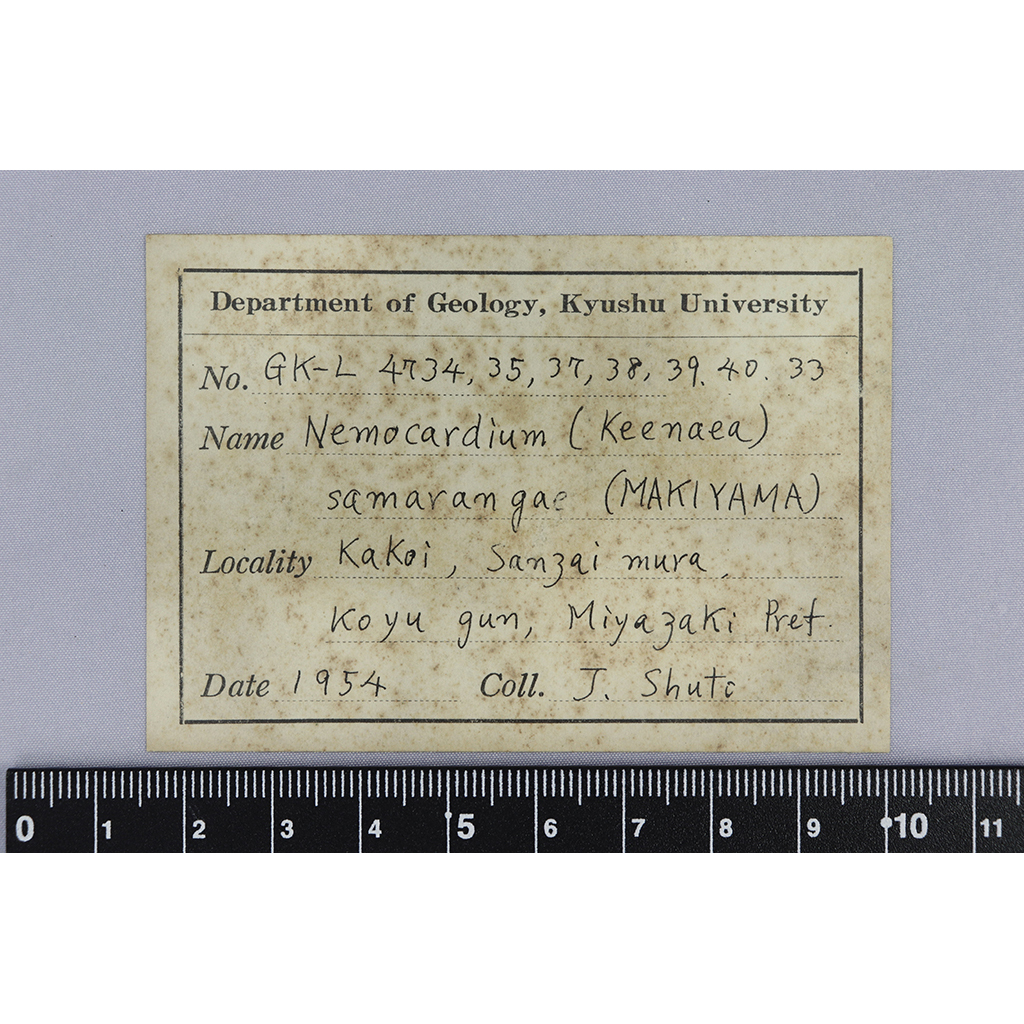 Department of Geology, Kyushu University
No. GK-L 4734, 35, 37, 38, 39. 40. 33
Name Nemocardium (Keenaea)
samarangae (MAKIYAMA)
Locality Kakoi, Sanzai mura,
Koyu gun, Miyazaki Pref.
Date 1954 Coll. J. Shuto
0 1 2 3 4 5 6 7 8 9 10 11